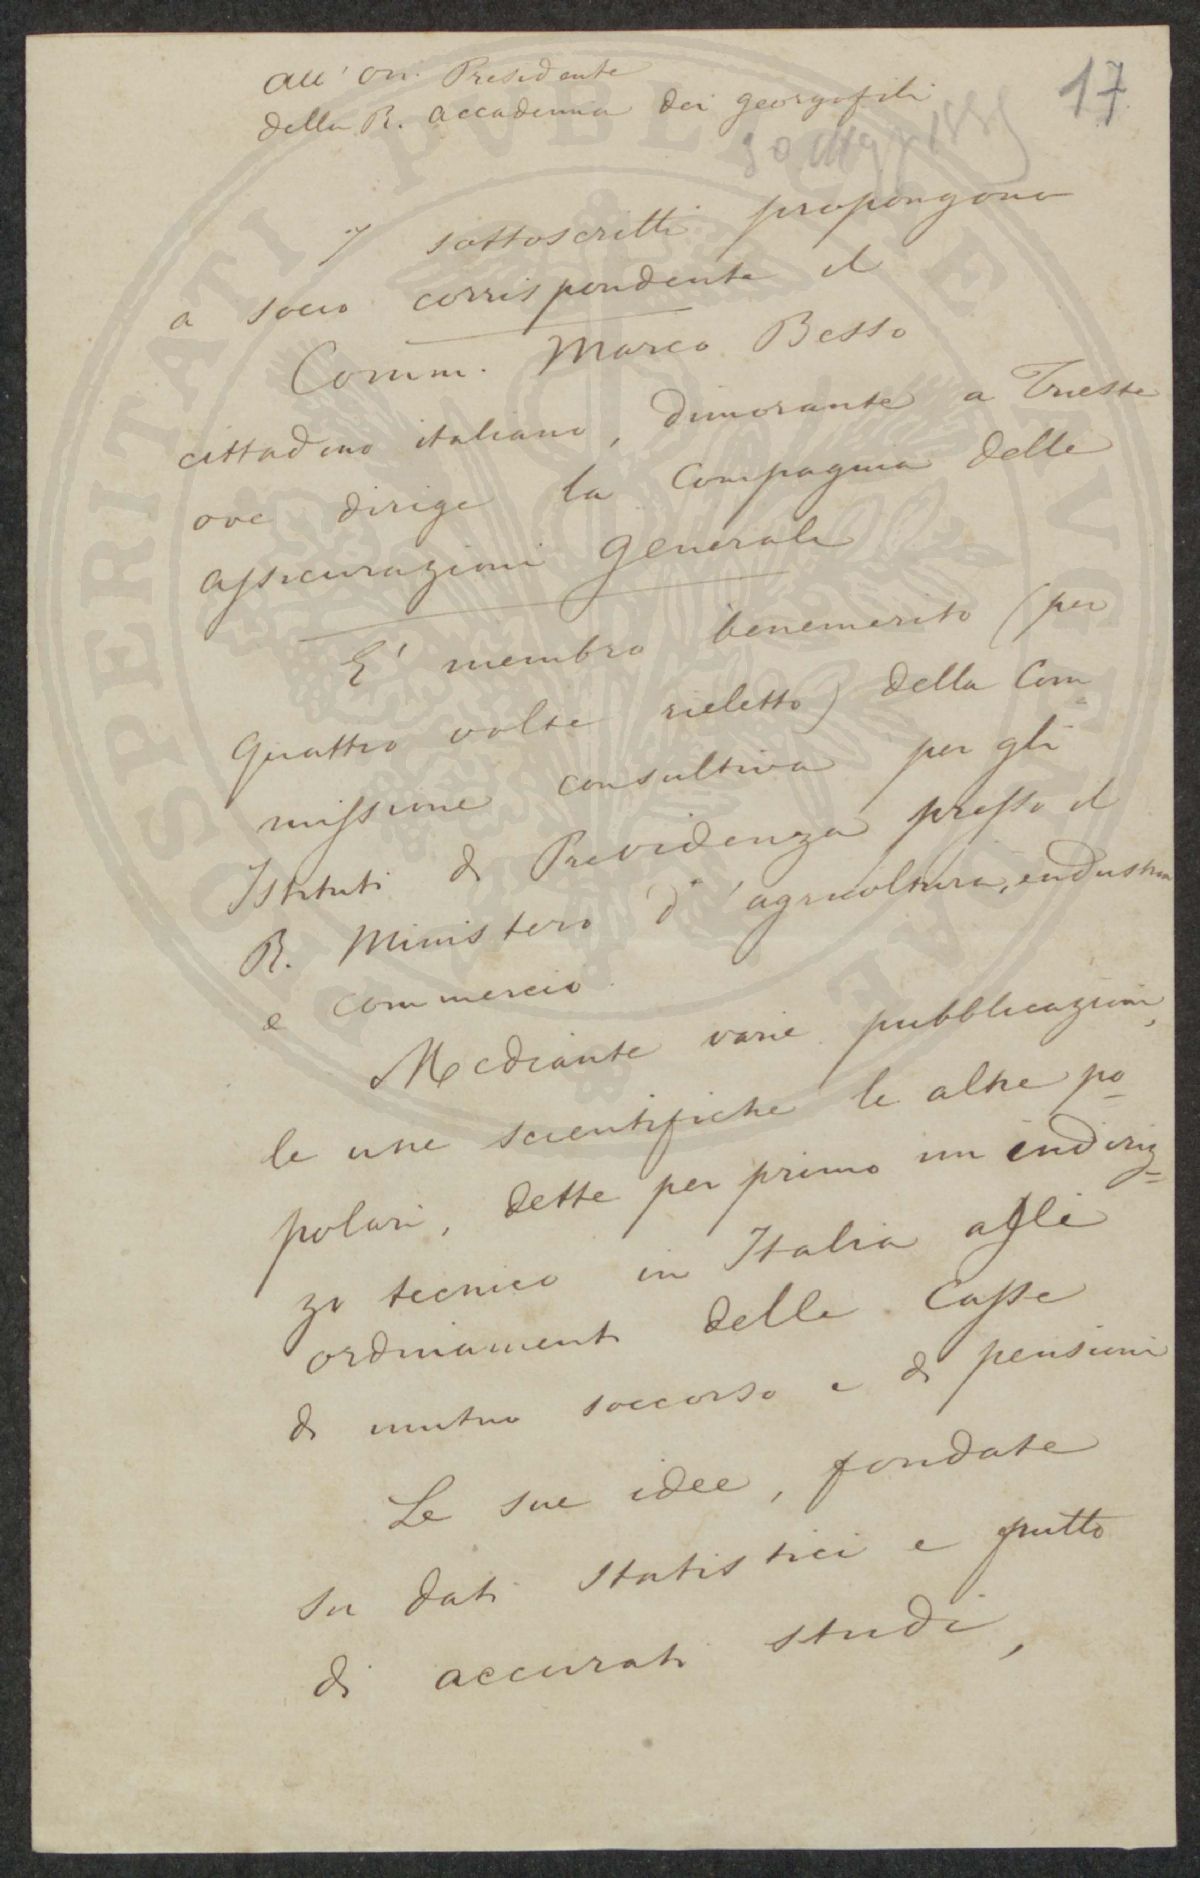 All' On. Presidente
della R. Accademia dei georgofili
17
I sottoscritti propongono
a socio corrispondente il
Comm. Marco Besso
cittadino italiano, dimorante a Trieste
ove dirige la Compagnia delle
Assicurazioni Generali
E' membro benemerito (per
quattro volte rieletto) della Com
missione consultiva per gli
Istituti di Previdenza presso il
R. Ministero d'agricoltura, industria
e commercio.
Mediante varie pubblicazioni,
le une scientifiche le altre po-
polari, dette per primo un indiriz=
zo tecnico in Italia agli
ordinamenti delle Casse
di mutuo soccorso e di pensioni
Le sue idee, fondate
su dati statistici e frutto
di accurati studi,
PROSPERITATI PUBLICAE AUGENDAE